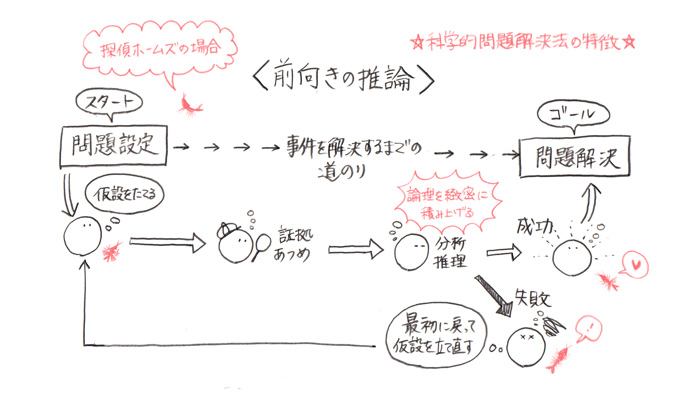 探偵ホームズの場合
☆科学的問題解決法の特徴☆
〈前向きの推論〉
スタート
ゴール
問題設定
事件を解決するまでの
道のり
問題解決
仮設をたてる
論理を緻密に
積み上げる
証拠
あつめ
分析
推理
成功
失敗
最初に戻って
仮設を立て直す
!